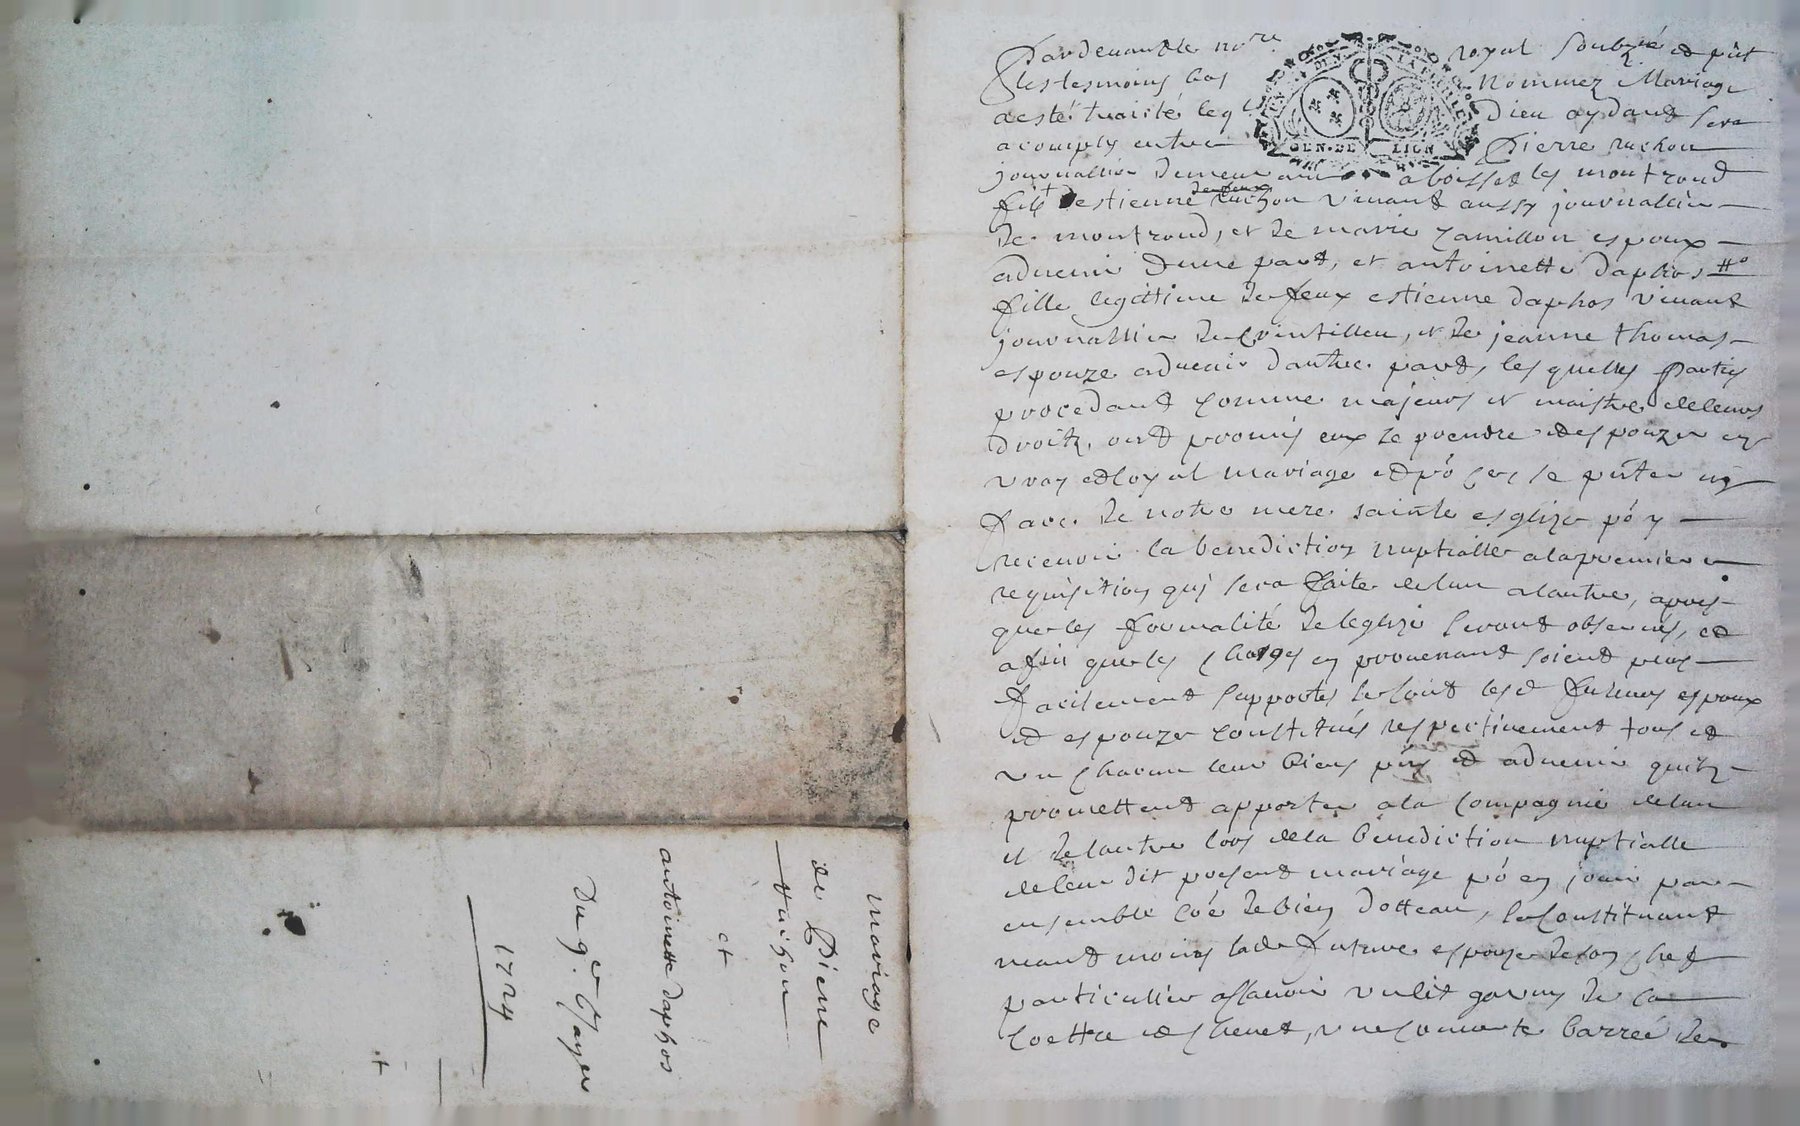 mariage
de Pierre
ruchon
et
antoinette daphos
Du 9.e
1724
Pardevant le nore royal soubzné et pnt
les tesmoins bas nommez Mariage
a esté traité leql Dieu aydant sera
acomply entre Pierre ruchon
journallier demeurant a boisset les montrond
fils destienne ruchon vivant aussy journallier
de montrond, et de marie espoux
advenir dune part, et antoinette daphos
fille legittime de feux estienne daphos vivant
journallier de et de jeanne thomas
espouze advenir dautre part, les quelles parties
procedant comme majeurs et maistre de leurs
droitz, ont promis eux se prendre et espouzer en
vray et loyal mariage et po ce se pnter en
face de notre mere sainte esglize po y
recevoir la benediction nuptialle a la premiere
requisition quj sera faite de lun a lautre, apres
que les formalité de leglize seront observés, et
afin que les charges en provenant soient plus
facilement supportés se sont lesd futurs espoux
et espouze constitués respectivement tous et
un chacun leur biens pnts et advenir quilz
promettent apporter a la compagnie de lun
et de lautre lors de la benediction nuptialle
de leur dit present mariage po en jouir par
ensemble coe de bien dotteaux, se constituant
neant moins lade future espouze de son chef
particullier assavoir un lit garny de sa
coettre et chevet, une couverte barrée de
GEN. DE LION